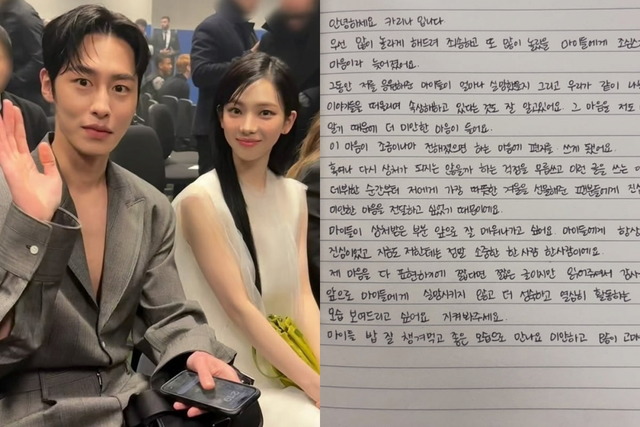 안녕하세요 카리나 입니다
우선 많이 놀라게 해드려 죄송하고 또 많이 놀랐을 마이들에게 조심스
마음이라 늦어졌어요.
그동안 저를 응원해준 마이들이 얼마나 실망했을지 그리고 우리가 같이 나눈
이야기들을 떠올리며 속상해하고 있다는 것도 잘 알고있어요. 그 마음을 저도
알기 때문에 더 미안한 마음이 들어요.
이 마음이 조금이나마 전해졌으면 하는 마음에 편지를 쓰게 됐어요.
혹여나 다시 상처가 되지는 않을까 하는 걱정을 무릅쓰고 이런 글을 쓰는
데뷔한 순간부터 저에게 가장 따뜻한 겨울을 선물해준 팬분들에게 진심
미안한 마음을 전달하고 싶었기 때문이에요.
마이들이 상처받은 부분 앞으로 잘 메워나가고 싶어요. 마이들에게 항상
진심이었고 지금도 저한테는 정말 소중한 한사람 한사람이에요.
제 마음을 다 표현하기에 짧다면 짧은 글이지만 읽어주셔서 감사
앞으로 마이들에게 실망시키지 않고 더 성숙하고 열심히 활동하는
모습 보여드리고 싶어요 지켜봐주세요.
마이들 밥 잘 챙겨먹고 좋은 모습으로 만나요 미안하고 많이 고마